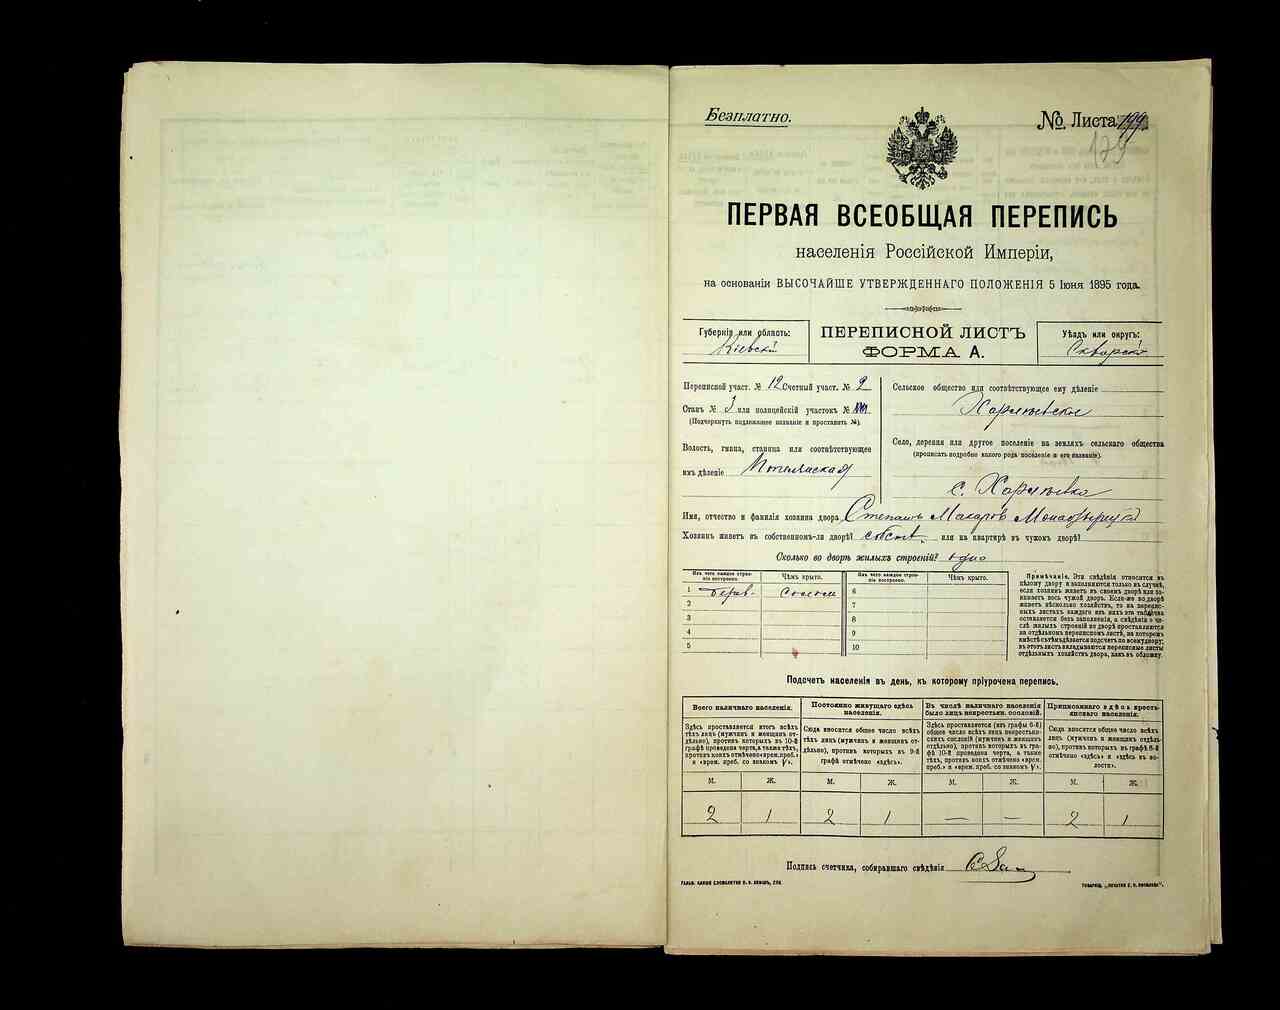 Безплатно.
№ Листа 199.
179
ПЕРВАЯ ВСЕОБЩАЯ ПЕРЕПИСЬ
населенія Россійской Имперіи,
на основаніи ВЫСОЧАЙШЕ УТВЕРЖДЕННАГО ПОЛОЖЕНІЯ 5 Іюня 1895 года.
Губернія или область:
Кіевскі
ПЕРЕПИСНОЙ ЛИСТЪ
ФОРМА А.
Уѣздъ или округъ:
Сквирскі
Переписной участ. № 12 Счетный участ. № 2
Станъ № 3 или полицейскій участокъ №
(Подчеркнуть надлежащее названіе и проставить №).
Волость, гмина, станица или соотвѣтствующее
имъ дѣленіе
Сельское общество или соотвѣтствующее ему дѣленіе
Харлѣевское
Село, деревня или другое поселеніе на земляхъ сельскаго общества
(прописать подробно какого рода поселеніе и его названіе).
с. Харлѣевка
Имя, отчество и фамилія хозяина двора Степанъ Макаров Монастырецкі
Хозяинъ живетъ въ собственномъ-ли дворѣ? собств. или на квартирѣ въ чужомъ дворѣ?
Сколько во дворѣ жилыхъ строеній? одно
Изъ чего каждое строеніе построено. Чѣмъ крыто. Изъ чего каждое строеніе построено. Чѣмъ крыто.
1 дерев. солом 6
2 7
3 8
4 9
5 10
Примѣчаніе. Эти свѣдѣнія относятся къ
цѣлому двору и заполняются только въ случаѣ,
если хозяинъ живетъ въ своемъ дворѣ или занимаетъ
весь чужой дворъ. Если-же во дворѣ
живетъ нѣсколько хозяйствъ, то на переписныхъ
листахъ каждаго изъ нихъ эта табличка
оставляется безъ заполненія, а свѣдѣнія о числѣ
жилыхъ строеній во дворѣ проставляются
на отдѣльномъ переписномъ листѣ, на которомъ
вмѣстѣ съ тѣмъ дѣлается подсчетъ по всему двору;
въ этотъ листъ вкладываются переписные листы
отдѣльныхъ хозяйствъ двора, какъ въ обложку.
Подсчетъ населенія въ день, къ которому пріурочена перепись.
Всего наличнаго населенія.
Здѣсь проставляется итогъ всѣхъ
тѣхъ лицъ (мужчинъ и женщинъ отдѣльно),
противъ которыхъ въ 10-й
графѣ проведена черта, а также тѣхъ,
противъ коихъ отмѣчено «врем. преб.»
и «врем. преб. со знакомъ V».
Постоянно живущаго здѣсь
населенія.
Сюда вносится общее число всѣхъ
лицъ (мужчинъ и женщинъ отдѣльно),
противъ которыхъ въ 9-й
графѣ отмѣчено «здѣсь».
Въ числѣ наличнаго населенія
было лицъ некрестьян. сословій.
Здѣсь проставляется (изъ графы 6-й)
общее число всѣхъ лицъ некрестьянскихъ
сословій (мужчинъ и женщинъ
отдѣльно), противъ которыхъ въ графѣ
10-й проведена черта, а также
тѣхъ, противъ коихъ отмѣчено «врем.
преб.» и «врем. преб. со знакомъ V».
Приписаннаго здѣсь крестьянскаго
населенія.
Сюда вносится общее число всѣхъ
лицъ (мужчинъ и женщинъ отдѣльно),
противъ которыхъ въ графѣ 8-й
отмѣчено «здѣсь» и «здѣсь въ волости».
М. Ж. М. Ж. М. Ж. М. Ж.
2 1 2 1 — — 2 1
Подпись счетчика, собиравшаго свѣдѣнія